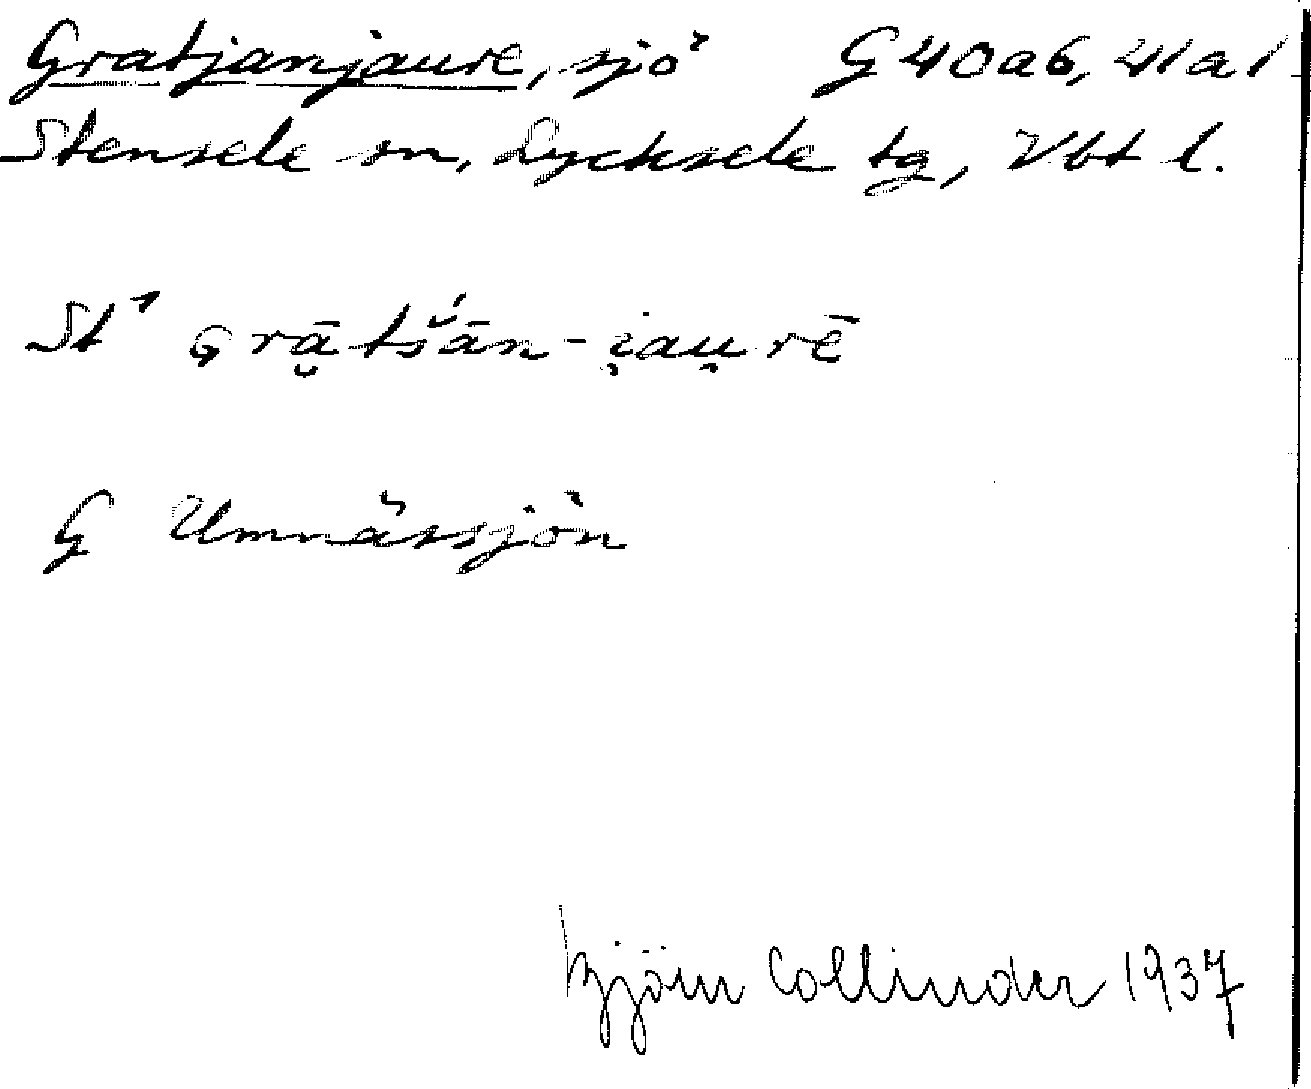 Gratjanjaure, sjö G 40a6, 41a1
Stensele sn, Lycksele tg, Vbt l.
St¹ ɢrā̮tš́ān-i̯au̯rē
G Umnässjön
Björn Collinder 1937